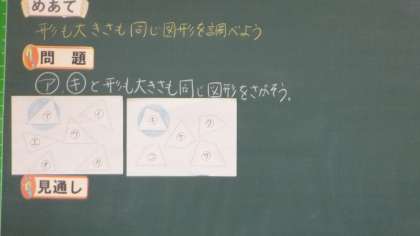 めあて
形も大きさも同じ図形を調べよう
問題
㋐㋖と形も大きさも同じ図形をさがそう。
㋐
㋑
㋒
㋓
㋔
㋕
㋖
㋗
㋘
㋙
見通し